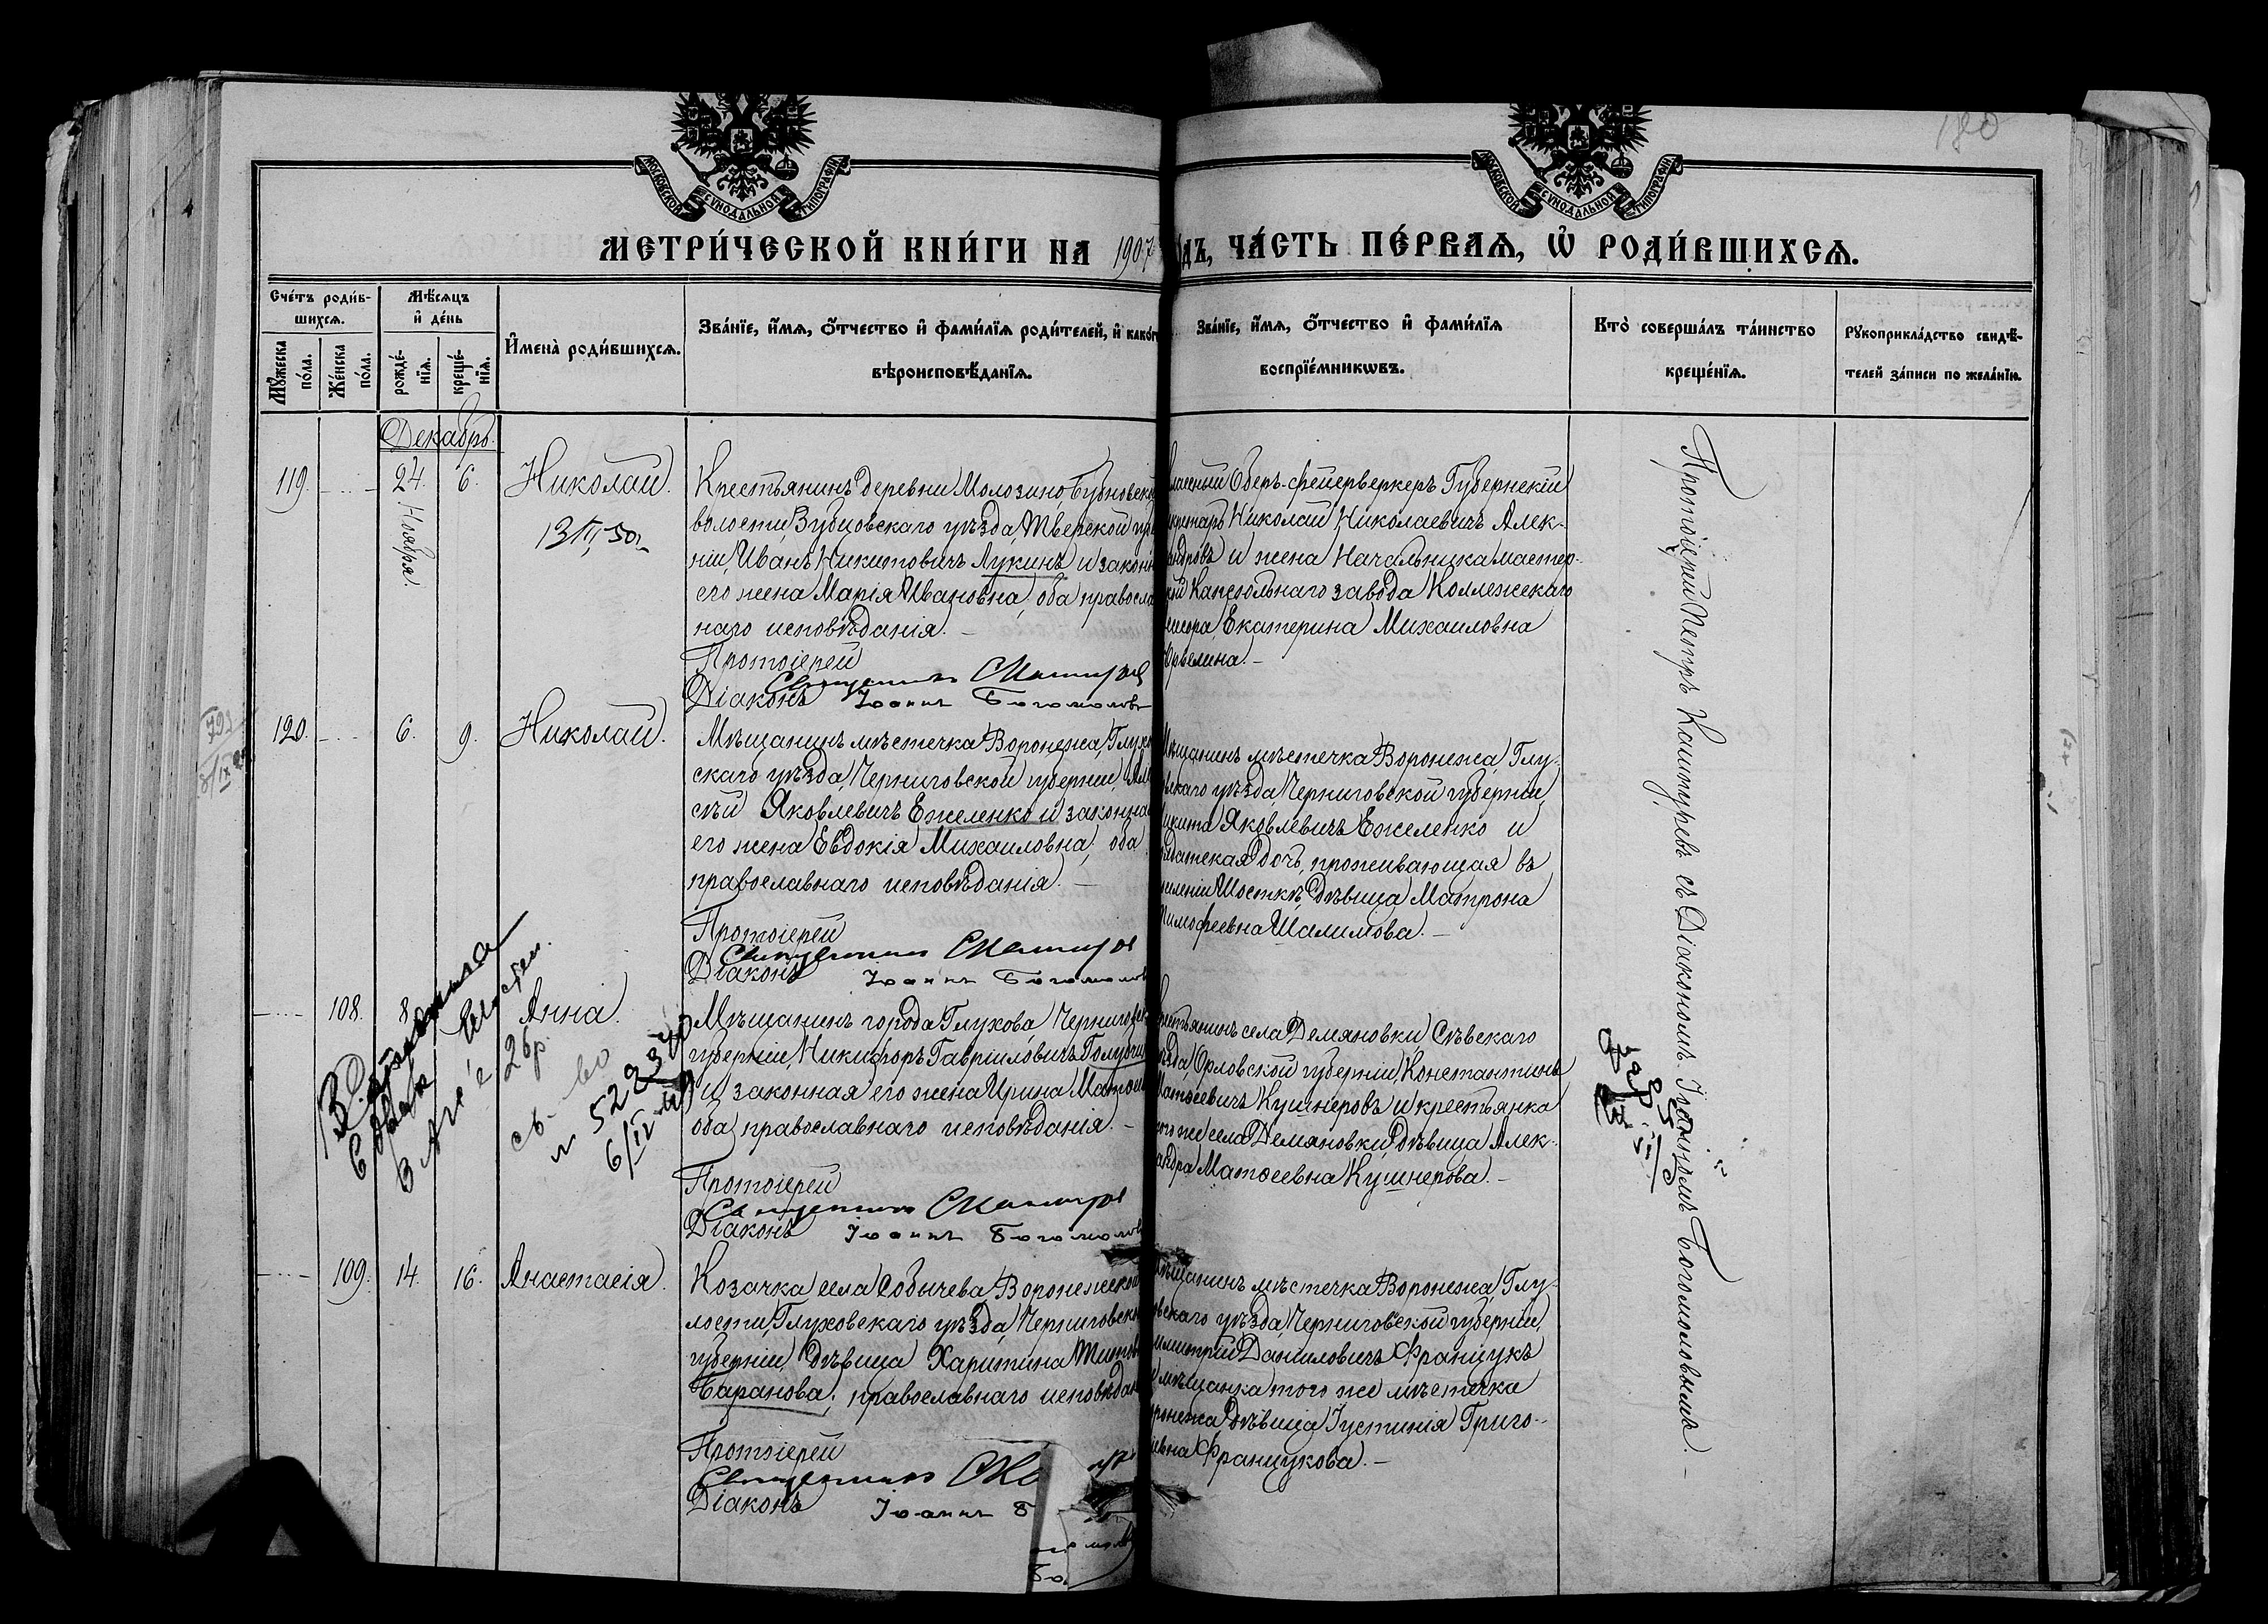 180
МОСКОВСКОЙ СѴНОДАЛЬНОЙ ТИПОГРАФІИ
МОСКОВСКОЙ СѴНОДАЛЬНОЙ ТИПОГРАФІИ
МЕТРИ́ЧЕСКОЙ КНИ́ГИ НА 1907
дъ, ЧА́СТЬ ПЕ́РВАѦ, Ѽ РОДИ́ВШИХСѦ.
Сче́тъ роди́в-
шихся.
Мѣ́сяцъ
и҆ де́нь
Мꙋ́жеска по́ла.
Же́нска по́ла.
рожде́-
нїя.
креще́-
нїя.
И҆мена̀ роди́вшихся.
Зва́нїе, и҆́мя, ѻ҆́тчество и҆ фами́лїя роди́телей, и҆ како́г
вѣроисповѣ́данїя.
Зва́нїе, и҆́мя, ѻ҆́тчество и҆ фами́лїя
воспрїе́мникѡвъ.
Кто̀ соверша́лъ та́инство
креще́нїя.
Рꙋкоприкла́дство свидѣ́-
телей за́писи по жела́нїю.
Декабрь.
119.
24.
Ноября.
6.
Николай.
Крестьянинъ деревни Молозино Бубновской
волости, Зубцовскаго уѣзда, Тверской губер
ніи, Иванъ Никитовичъ Лукинъ и законн
его жена Марія Ивановна, оба правосла
наго исповѣданія. –
Протоіерей
Священникъ
Діаконъ Іоаннъ Богомоловъ
лассный Оберъ-фейерверкеръ Губернскій
кретарь Николай Николаевичъ Алек-
андровъ и жена Начальника мастер-
кой Капсюльнаго завода Коллежскаго
ссора Екатерина Михайловна
120.
6.
9.
Николай.
Мѣщанинъ мѣстечка Воронежа, Глухо
скаго уѣзда, Черниговской губерніи, Але
сѣй Яковлевичъ Ежеленко и законная
его жена Евдокія Михайловна, оба
православнаго исповѣданія. –
Протоіерей
Священникъ
Діаконъ Іоаннъ Богомолов
ѣщанинъ мѣстечка Воронежа, Глу-
вскаго уѣзда, Черниговской губерніи
икита Яковлевичъ Ежеленко и
лдатская дочь, проживающая въ
селеніи Шосткѣ, дѣвица Матрона
имофеевна Шалимова. –
108.
8
Анна.
Мѣщанинъ города Глухова, Черниговск
губерніи, Никифоръ Гавріиловичъ
и законная его жена Ирина
оба православнаго исповѣданія. –
Протоіерей
Священникъ
Діаконъ Іоаннъ Богомолов
рестьянинъ села Демяновки, Сѣвскаго
ѣзда, Орловской губерніи, Константинъ
Матѳеевичъ Кушнеровъ и крестьянка
того же села Демяновки, дѣвица Алек-
андра Матѳеевна Кушнерова. –
109.
14.
16.
Анастасія.
Козачка села Собычева, Воронежской
лости, Глуховскаго уѣзда, Черниговско
губерніи, дѣвица Харитина Титов
Баранова, православнаго исповѣдан
Протоіерей
Священникъ
Діаконъ Іоаннъ Б
ѣщанинъ мѣстечка Воронежа, Глу-
овскаго уѣзда, Черниговской губерніи,
имитрій Даниловичъ Францукъ
и мѣщанка того же мѣстечка
оронежа дѣвица Іустинія Григо-
ьевна Францукова. –
Протоіерей Петръ Каштуревъ съ Діакономъ Іоанномъ Богомоловымъ. –